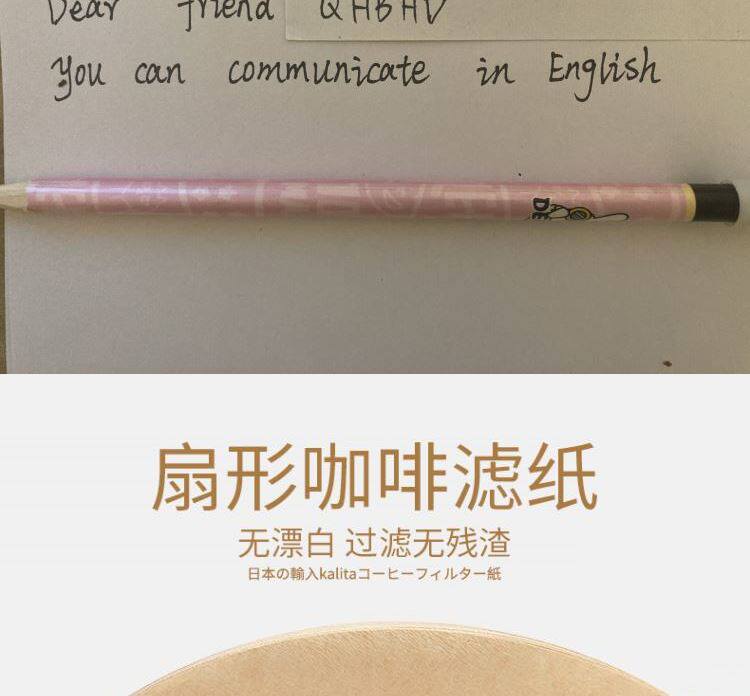 Dear friend QHBHV
You can communicate in English
DE
扇形咖啡滤纸
无漂白 过滤无残渣
日本の輸入kalitaコーヒーフィルター紙